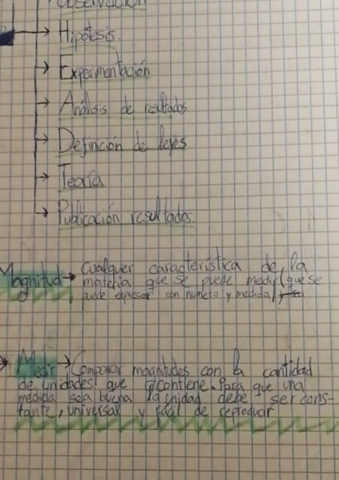 Observación
→ Hipótesis
→ Experimentación
→ Análisis de resultados
→ Definción de leyes
→ Teoría
→ Publicación resultados.
Magnitud → Cualquier característica de la
materia que se puede medir, que se
puede expresar con numero y medida
Medir → Comparar magnitudes con la cantidad
de unidades que contiene. Para que una
medida sea buena la unidad debe ser cons-
tante, universal y fácil de reproducir